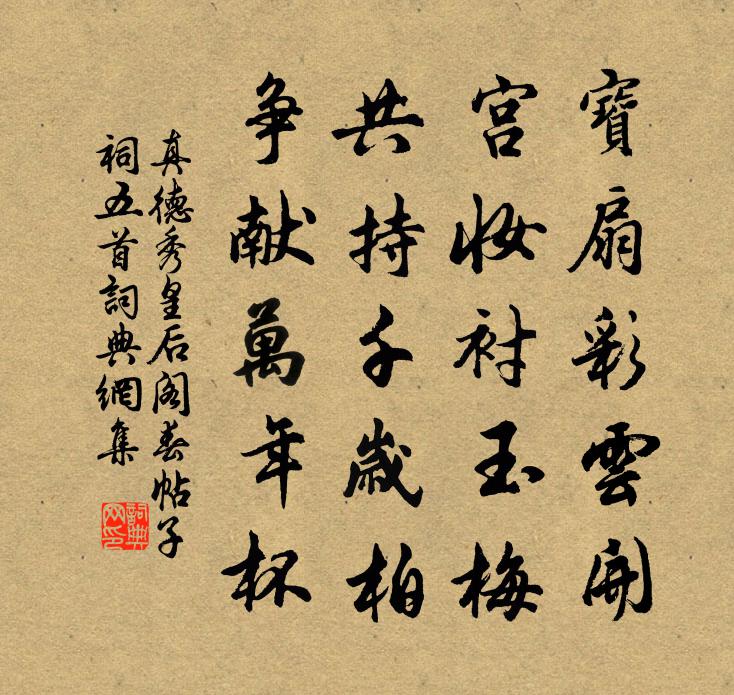 寶扇彩雲開
宫妝衬玉梅
共持千歲柏
争献萬年杯
真德秀皇后阁春帖子
祠五首詞典網集
詞典
网印